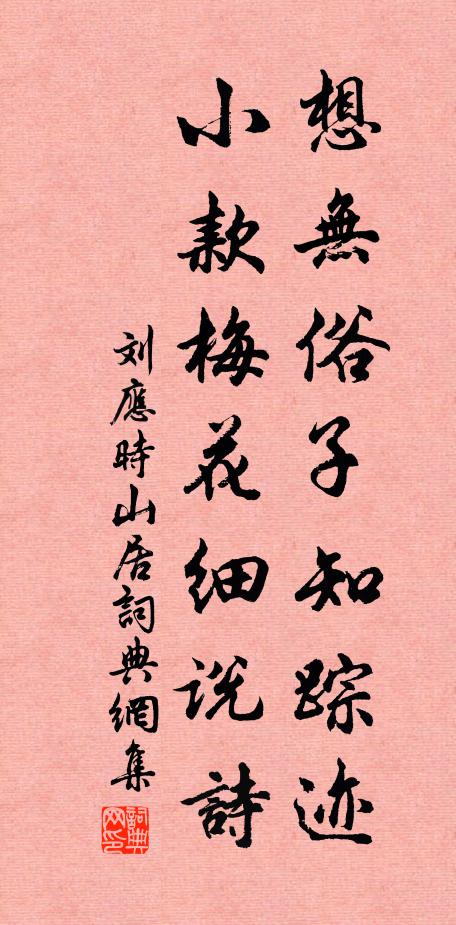 想無俗子知踪迹
小款梅花细説詩
刘應時山居詞典網集
詞典网印